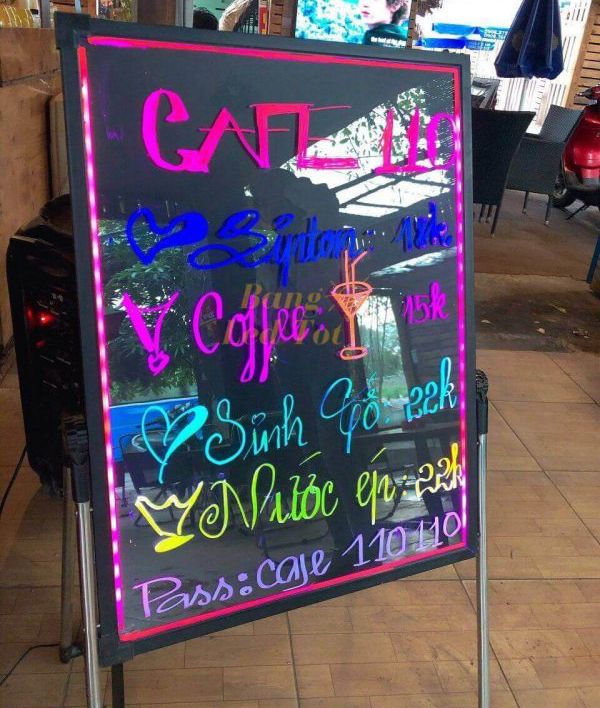 CAFE 110
Sinton: 18k.
Coffee: 15k
Sinh Tố: 22k
Nước ép: 22k
Pass: cafe 110 110
Bang
Led Tot